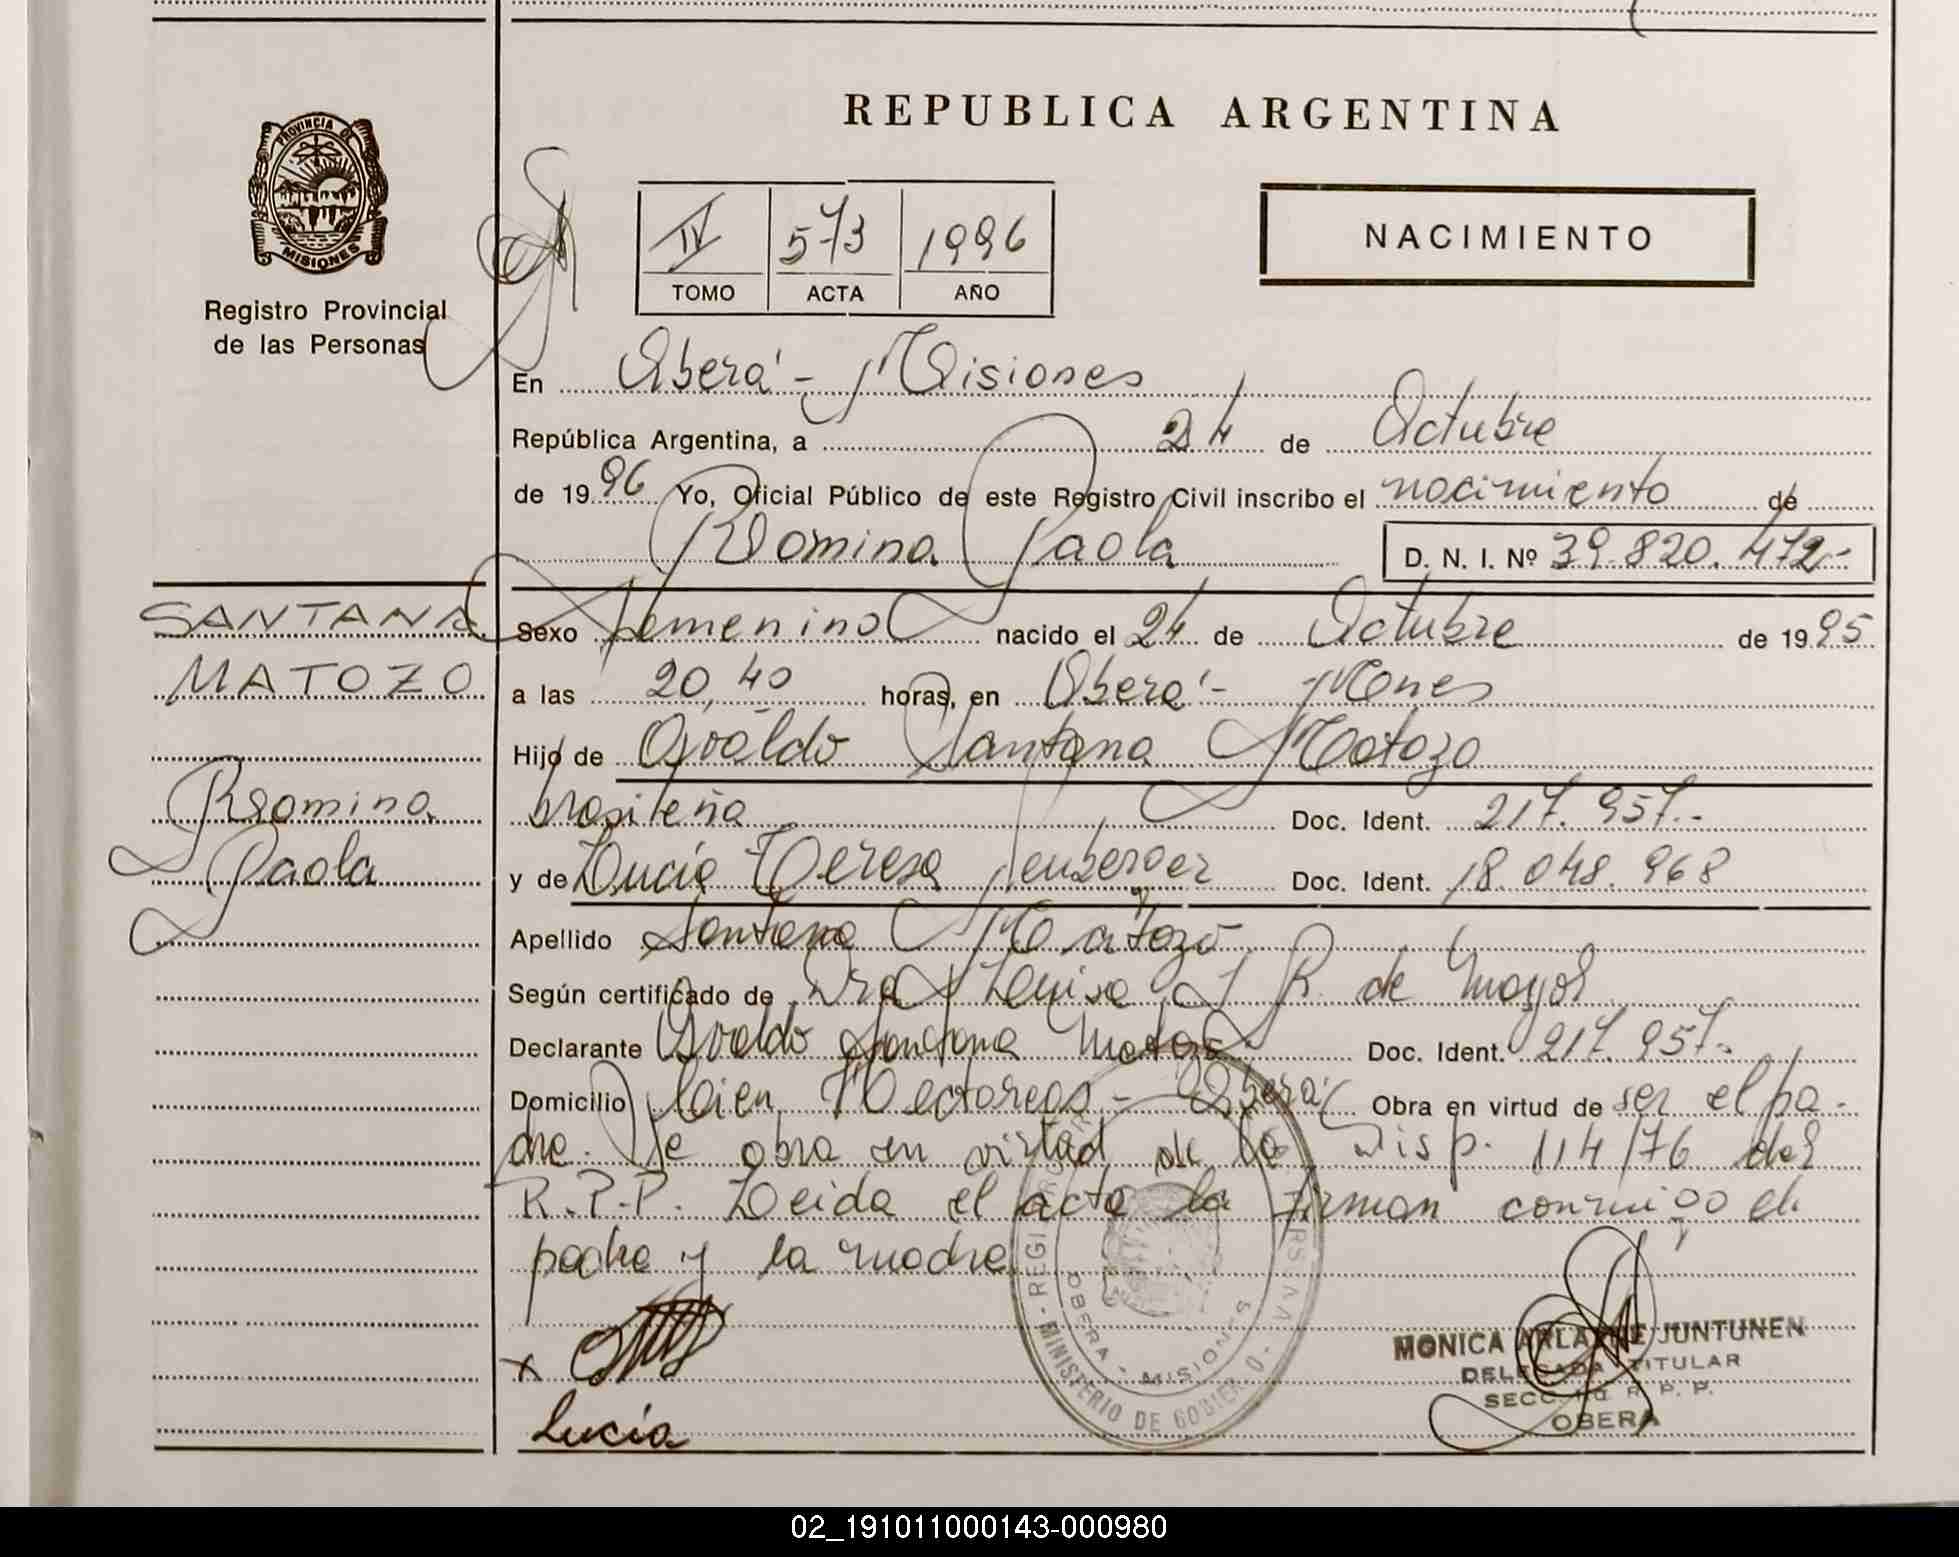 REPUBLICA ARGENTINA
PROVINCIA DE
MISIONES
Registro Provincial
de las Personas
IV 573 1996
TOMO ACTA AÑO
NACIMIENTO
En Oberá - Misiones
República Argentina, a 24 de Octubre
de 1996 Yo, Oficial Público de este Registro Civil inscribo el nacimiento de
Romina Paola D. N. I. Nº 39.820.472-
SANTANA
MATOZO
Romina
Paola
Sexo femenino nacido el 24 de Octubre de 1995
a las 20,40 horas, en Oberá - Mones
Hijo de Osvaldo Santana Matozo
brasileña Doc. Ident. 217.957.-
y de Lucía Teresa Doc. Ident. 18.048.968
Apellido Santana Matozo
Según certificado de Dra Luisa J R. de Mayol
Declarante Osvaldo Santana Matozo Doc. Ident. 217.957.-
Domicilio Cien Hectoreas - Oberá Obra en virtud de ser el pa-
dre. Se obra en virtud de la Disp. 114/76 del
R.P.P. Leida el acta la firman conmigo el
padre y la madre
x
Lucía
OBERA - MISIONES
MINISTERIO DE GOBIERNO
MONICA JUNTUNEN
DELEGADA TITULAR
SECC. R. P. P.
OBERA
02_191011000143-000980